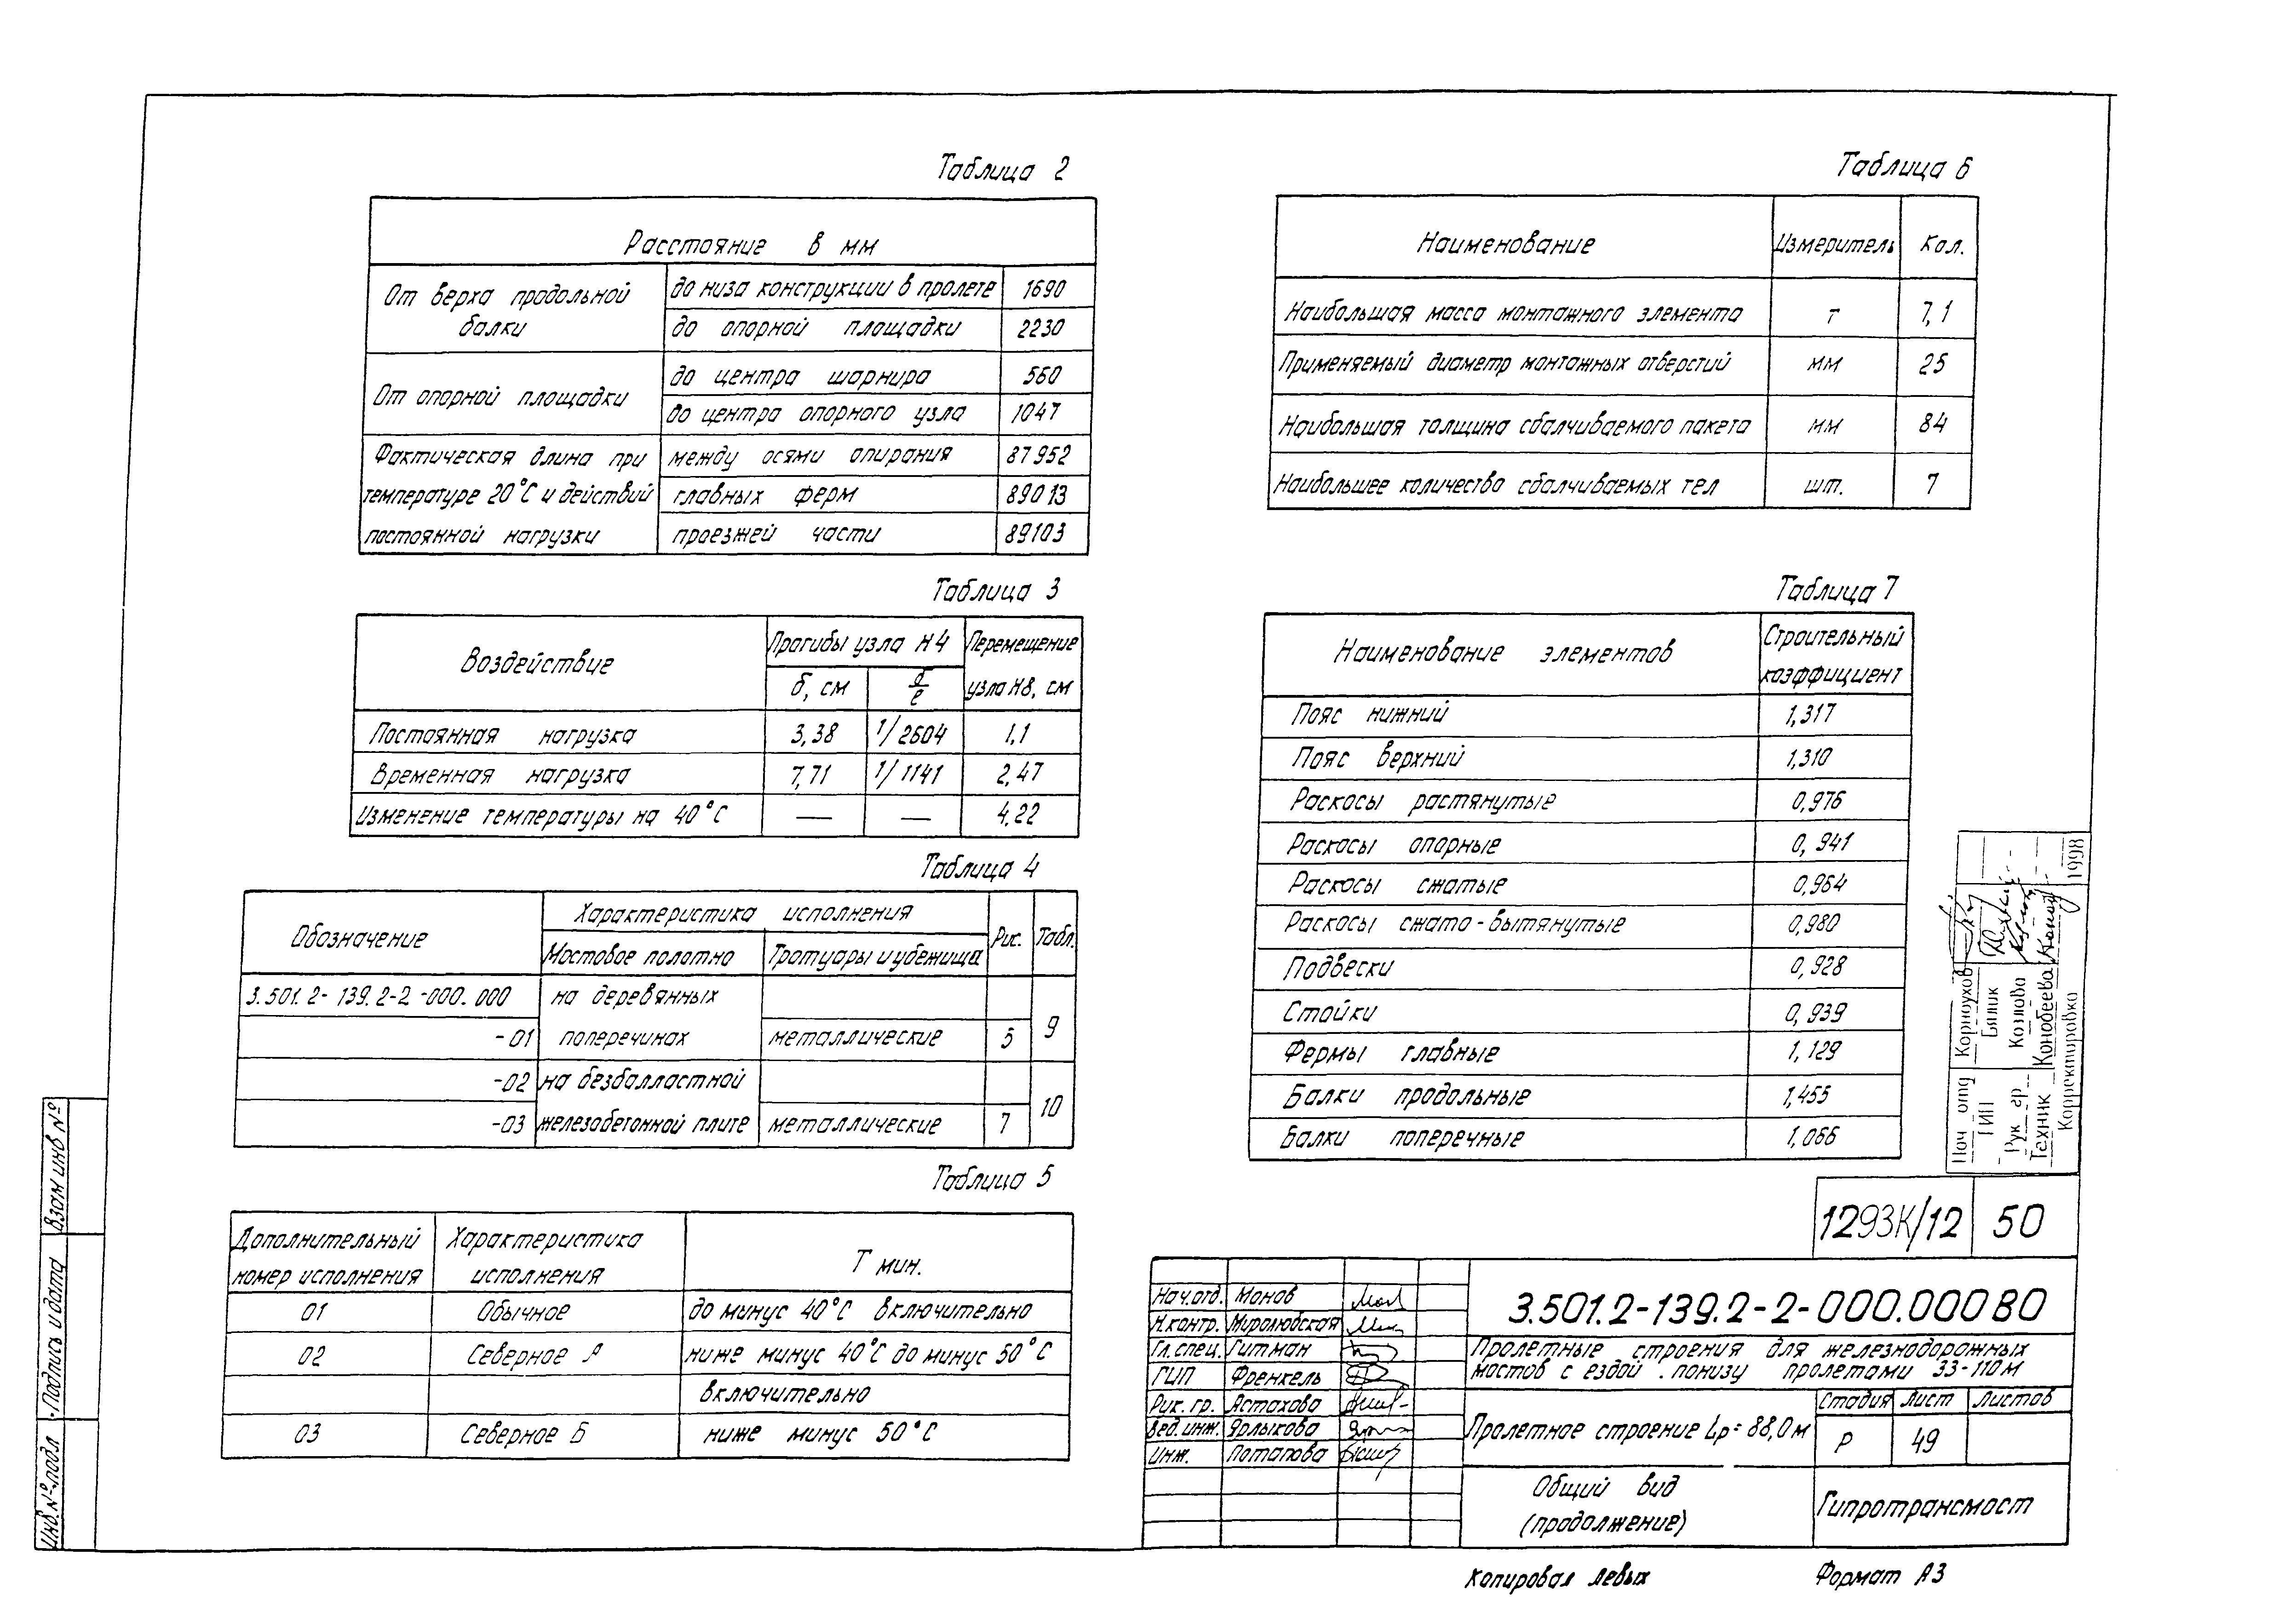 Таблица 2
Расстояние в мм
От верха продольной балки
до низа конструкции в пролете 1690
до опорной площадки 2230
От опорной площадки
до центра шарнира 560
до центра опорного узла 1047
Фактическая длина при температуре 20°С и действий постоянной нагрузки
между осями опирания 87952
главных ферм 89013
проезжей части 89103
Таблица 3
Воздействие
Прогибы узла Н4
Перемещение узла Н8, см
δ, см
δ/ℓ
Постоянная нагрузка 3,38 1/2604 1,1
Временная нагрузка 7,71 1/1141 2,47
Изменение температуры на 40°С — — 4,22
Таблица 4
Обозначение
Характеристика исполнения
Рис.
Табл.
Мостовое полотно
Тротуары и убежища
3.501.2-139.2-2-000.000 на деревянных
-01 поперечинах металлические 5 9
-02 на безбалластной
-03 железобетонной плите металлические 7 10
Таблица 5
Дополнительный номер исполнения
Характеристика исполнения
Т мин.
01 Обычное до минус 40°С включительно
02 Северное А ниже минус 40°С до минус 50°С
включительно
03 Северное Б ниже минус 50°С
Таблица 6
Наименование Измеритель Кол.
Наибольшая масса монтажного элемента т 7,1
Применяемый диаметр монтажных отверстий мм 25
Наибольшая толщина сбалчиваемого пакета мм 84
Наибольшее количество сбалчиваемых тел шт. 7
Таблица 7
Наименование элементов
Строительный коэффициент
Пояс нижний 1,317
Пояс верхний 1,310
Раскосы растянутые 0,976
Раскосы опорные 0,941
Раскосы сжатые 0,964
Раскосы сжато-вытянутые 0,980
Подвески 0,928
Стойки 0,939
Фермы главные 1,129
Балки продольные 1,455
Балки поперечные 1,066
Нач отд Корноухов
ГИП Бялик
Рук гр Козлова
Техник Конобеева
Корректировка 1998
1293К/12 50
3.501.2-139.2-2-000.000В0
Нач.отд. Монов
Н.контр. Миролюбская
Гл.спец. Гитман
ГИП Френкель
Рук. гр. Астахова
Вед.инж. Ярлыкова
Инж. Потапова
Пролетные строения для железнодорожных
мостов с ездой понизу пролетами 33-110м
Пролетное строение Lp=88,0м
Стадия Лист Листов
Р 49
Общий вид
(продолжение)
Гипротрансмост
Копировал Левых
Формат А3
Взам инв №
Подпись и дата
Инв.№ подл